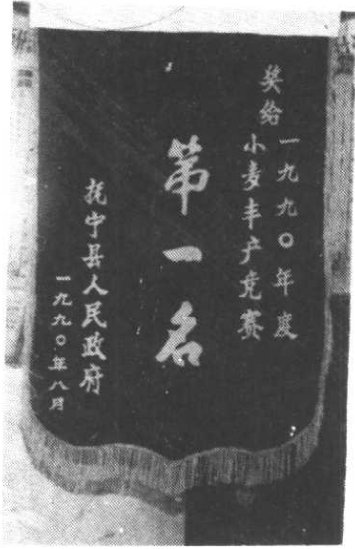 奖给一九九〇年度
小麦丰产竞赛
第一名
抚宁县人民政府
一九九〇年八月